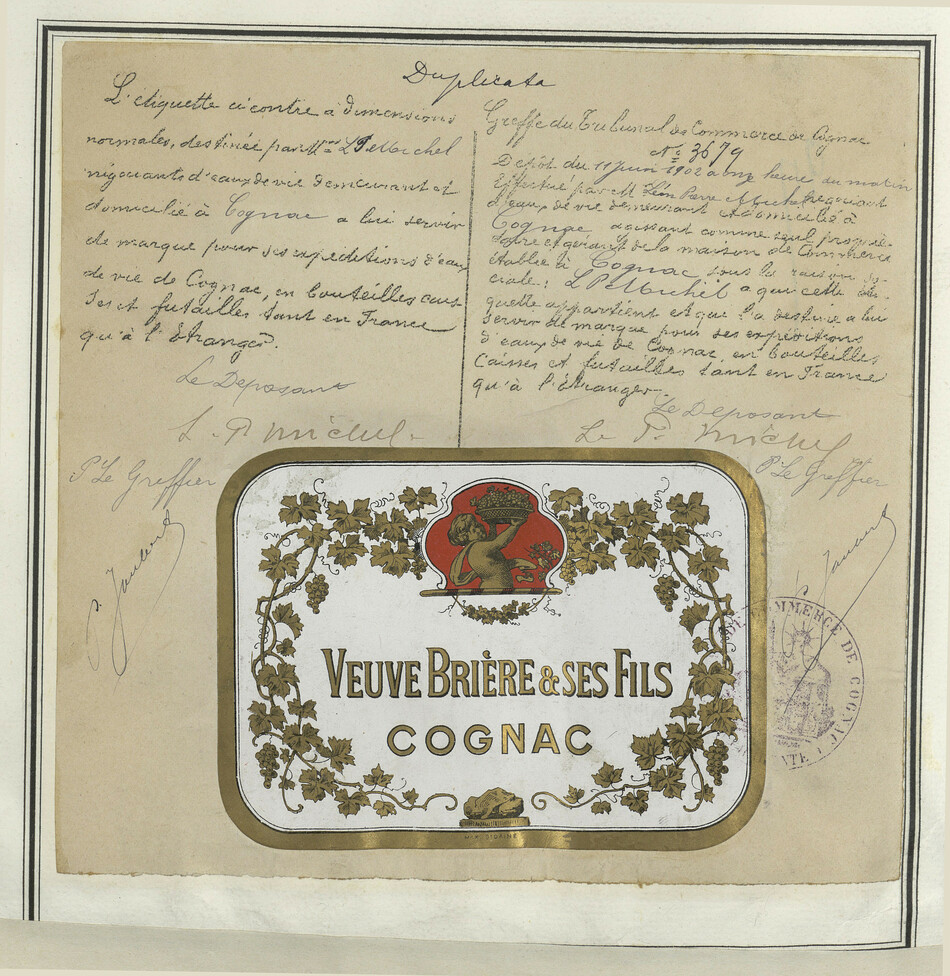 Duplicata
L'étiquette ci contre à dimensions
normales, destinée par Mr L P Michel
négociants d'eaux de vie demeurant et
domicilié à Cognac a lui servir
de marque pour ses expéditions d'eaux
de vie de Cognac, en bouteilles cais
ses et futailles tant en France
qu'à l'Etranger.
Le Deposant
L. P. Michel
P Le Greffier
Greffe du Tribunal de Commerce de Cognac
No 3679
Depôt du 11 Juin 1902 à onze heures du matin
Effectué par M Léon Pierre Michel négociant
d'eaux de vie demeurant et domicilié à
Cognac, agissant comme seul proprié-
taire et gérant de la maison de Commerce
établie à Cognac sous la raison so-
ciale: L P Michel a que cette éti-
quette appartient et que l'a destine a lui
servir de marque pour ses expéditions
d'eaux de vie de Cognac, en bouteilles
Caisses et futailles tant en France
qu'à l'étranger.
Le Deposant
L. P. Michel
P Le Greffier
VEUVE BRIÈRE & SES FILS
COGNAC
DE COMMERCE DE COGNAC